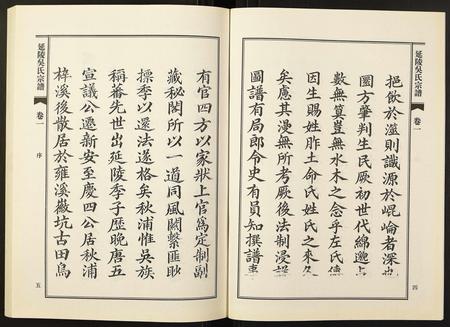 延陵吳氏宗譜
卷一
挹飲於溫則識源於崐崙者深
圜方肇判生民厥初世代綿邈
數無算豈無水木之念乎左氏傳
因生賜姓胙土命氏姓氏之來久
矣慮其漫無所考厥後法制浸
圖譜有局郎令史有員知撰譜
四
有官四方以家狀上官爲定制副
藏秘閣所以一道同風關繫匪眇
標季以還法遂格矣秋浦惟吳族
稱蕃先世出延陵季子歷晚唐五
宣議公遷新安至慶四公居秋浦
梓溪後散居於雍溪嶶坑古田烏
延陵吳氏宗譜
卷一
序
五